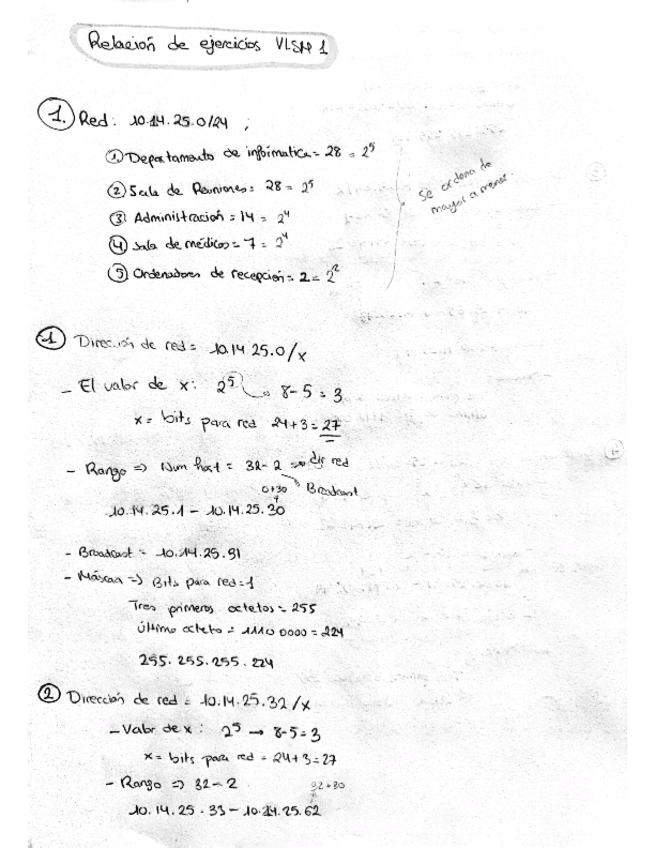 Relación de ejercicios VLSM 1
1. Red: 10.14.25.0/24 ;
① Departamento de informatica = 28 = 2^5
② Sala de Reuniones = 28 = 2^5
③ Administración = 14 = 2^4
④ Sala de médicos = 7 = 2^4
⑤ Ordenadores de recepción = 2 = 2^2
Se ordena de
mayor a menor.
① Dirección de red = 10.14.25.0/x
- El valor de x: 2^5 → 8-5 = 3
x = bits para red 24+3 = 27
- Rango => Num host = 32-2 → dir red
0+30 Broadcast
10.14.25.1 - 10.14.25.30
- Broadcast = 10.14.25.31
- Máscara => Bits para red = 1
Tres primeros octetos = 255
Último octeto = 11100000 = 224
255.255.255.224
② Dirección de red = 10.14.25.32/x
- Valor de x: 2^5 → 8-5 = 3
x = bits para red = 24+3 = 27
- Rango => 32-2 32+30
10.14.25.33 - 10.14.25.62